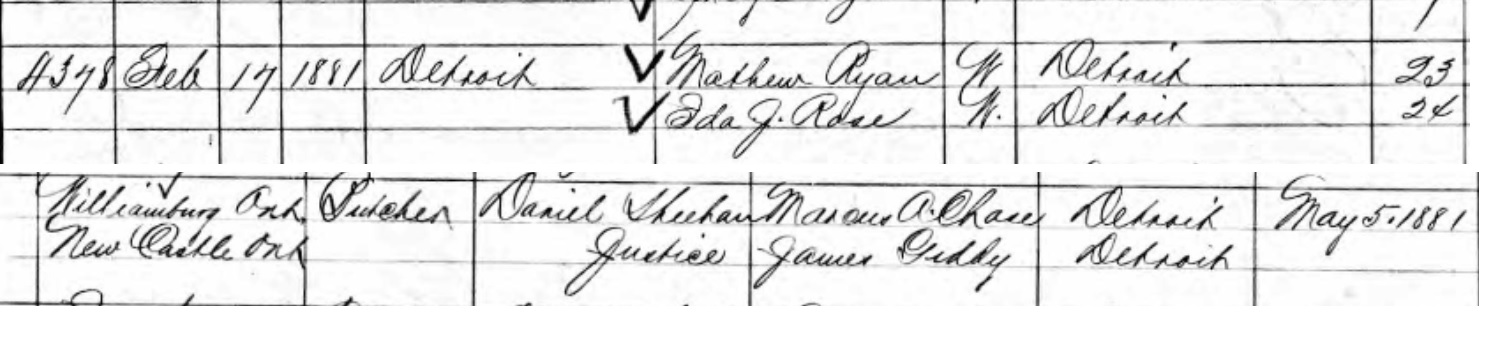 4378 Feb 17 1881 Detroit Mathew Ryan W. Detroit 23
Ida J. Rose W. Detroit 24
Williamburg Ont. Butcher Daniel Sheehan Marcus A. Chase Detroit May 5. 1881
New Castle Ont Justice James Giddy Detroit